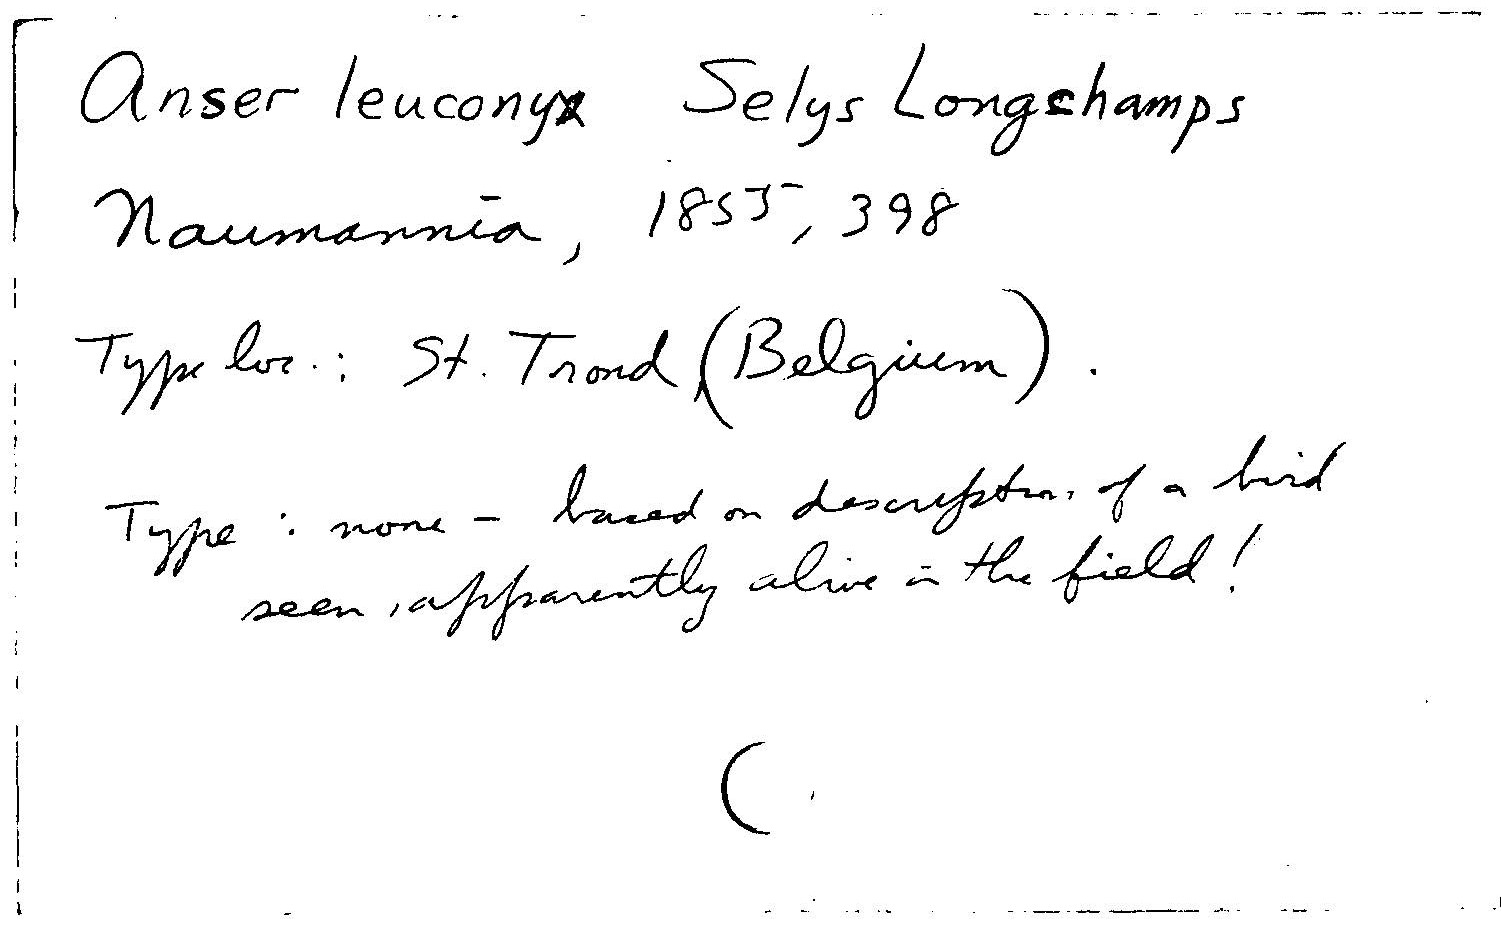 Anser leuconyx Selys Longchamps
Naumannia, 1855, 398
Type loc.: St. Trond (Belgium).
Type: none - based on description of a bird
seen, apparently alive in the field!
(